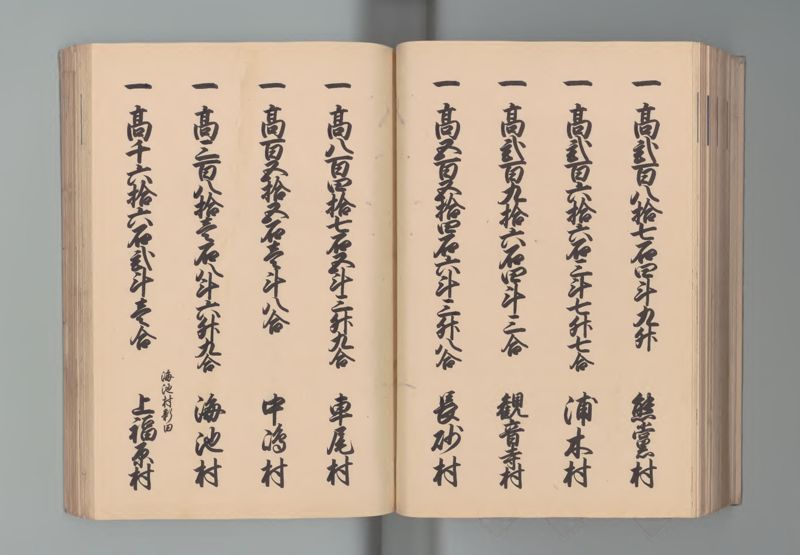 一 高弐百八拾七石四斗九升 熊党村
一 高弐百六拾六石三斗七升七合 浦木村
一 高弐百九拾六石四斗三合 観音寺村
一 高五百五拾四石六斗三升八合 長砂村
一 高八百四拾七石五斗三升九合 車尾村
一 高百五拾五石壱斗八合 中嶋村
一 高三百八拾壱石八斗六升九合 海池村
海池村新田
一 高千六拾六石弐斗壱合 上福原村